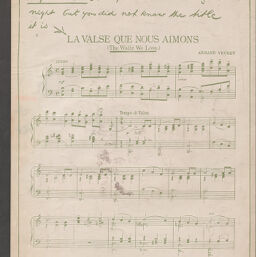 night but you did not know the title
it is
LA VALSE QUE NOUS AIMONS
(The Waltz We Love)
ARMAND
Tempo di Valse